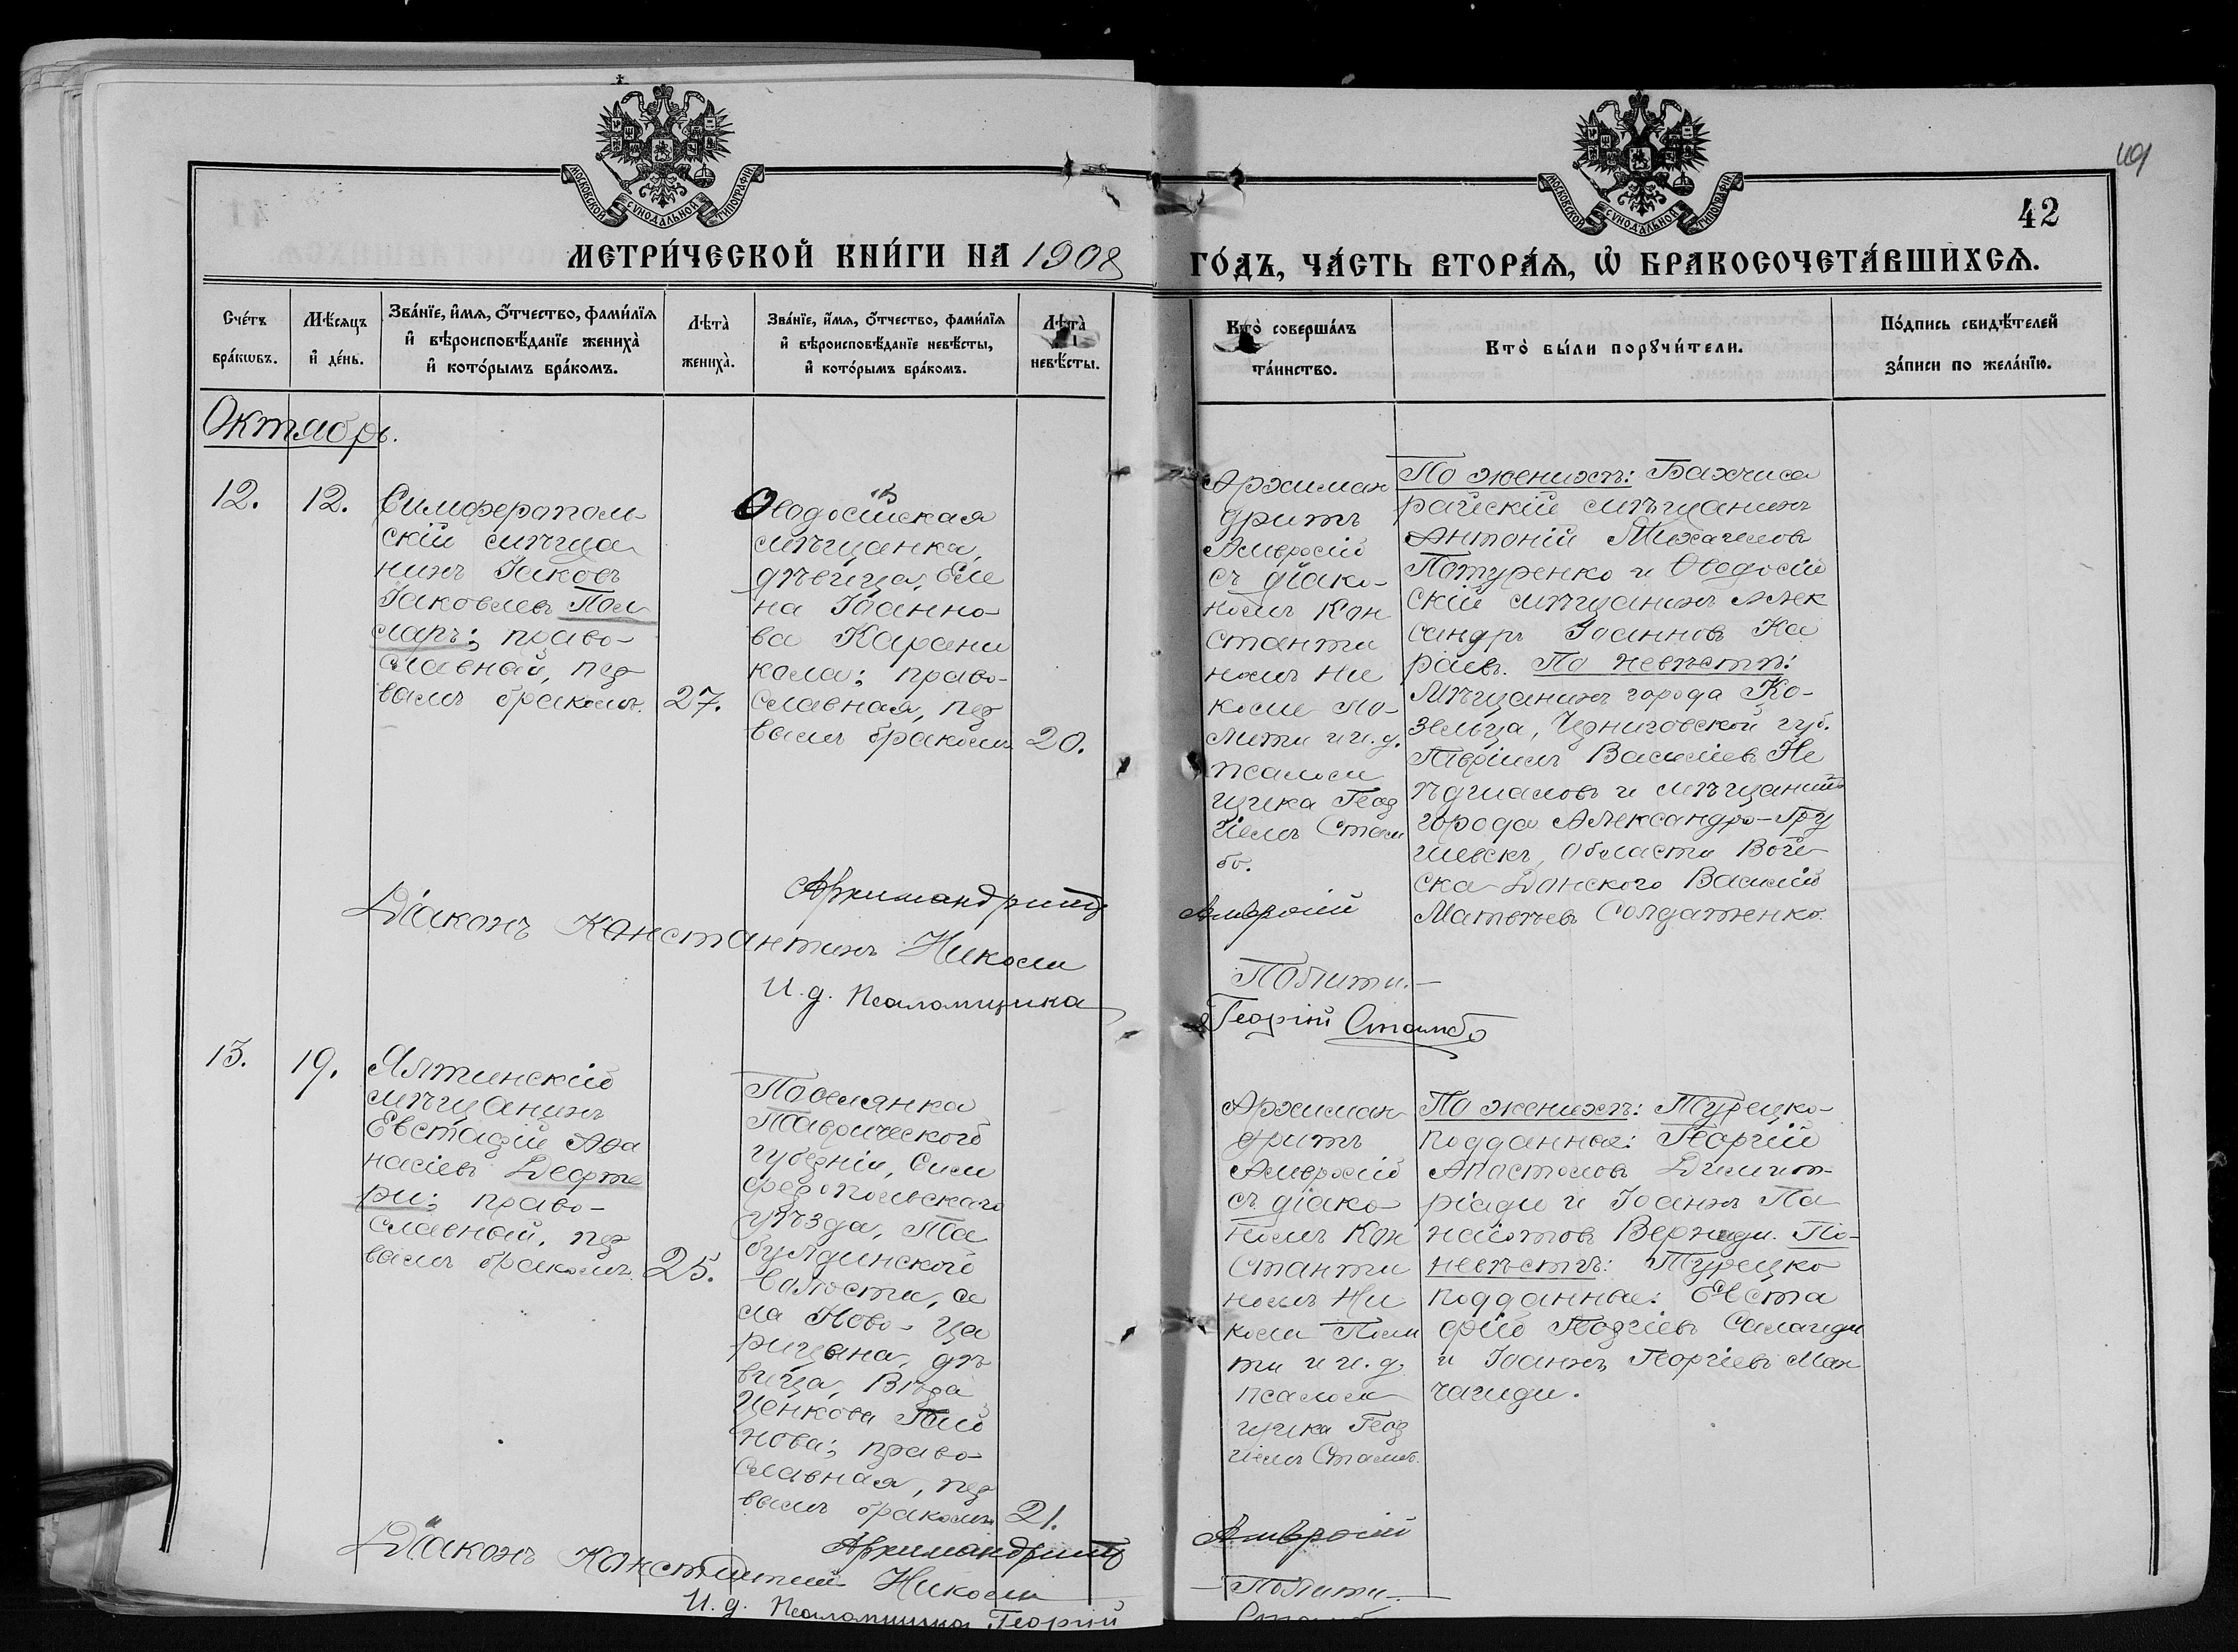 МОСКОВСКОЙ СѴНОДАЛЬНОЙ ТИПОГРАФІИ
МОСКОВСКОЙ СѴНОДАЛЬНОЙ ТИПОГРАФІИ
42
МЕТРИ́ЧЕСКОЙ КНИ́ГИ НА 1908
ГО́ДЪ, ЧА́СТЬ ВТОРА́Ѧ, Ѡ҆ БРАКОСОЧЕТА́ВШИХСѦ.
Сче́тъ
бра́кѡвъ.
Мѣ́сѧцъ
и҆ де́нь.
Зва́нїе, и҆́мѧ, ѻ҆́тчество, фами́лїѧ
и҆ вѣроисповѣ́данїе жениха̀
и҆ кото́рымъ бра́комъ.
Лѣта̀
жениха̀.
Зва́нїе, и҆́мѧ, ѻ҆́тчество, фами́лїѧ
и҆ вѣроисповѣ́данїе невѣ́сты,
и҆ кото́рымъ бра́комъ.
Лѣта̀
невѣ́сты.
Кто̀ соверша́лъ
та́инство.
Кто̀ бы́ли порꙋчи́тели.
По́дпись свидѣ́телей
за́писи по жела́нїю.
Октябрь.
12.
12.
Симферополь-
скій мѣща
нинъ Іаковъ
Іаковлевъ Пол
маръ; право-
славный, пер
вымъ бракомъ.
27.
Ѳеодосійская
мѣщанка,
дѣвица, Еле
на Іоанно-
ва Карани
кола; право-
славная, пер
вымъ бракомъ
20.
Архиман
дритъ
Амвросій
съ діако-
номъ Кон
станти
номъ Ни
коме По-
лити и и. д.
псалом
щика Геор
гіемъ Стам
бо.
По женихѣ: Бахчиса
райскій мѣщанинъ
Антоній Михаиловъ
Потуренко и Ѳеодосій
скій мѣщанинъ Алек
сандръ Іоанновъ Ка
раевъ. По невѣстѣ:
Мѣщанинъ города Ко-
зельца, Черниговской губ.
Гавріилъ Василіевъ Не
и мѣщанинъ
города Александро-Гру
шевскъ, Области Вой
ска Донского Василій
Матвѣевъ Солдатенко.
Архимандритъ
Амвросій
Діаконъ Константинъ Николи
Полити.
И. д. Псаломщика
Георгій Стамбо
13.
19.
Ялтинскій
мѣщанинъ
Евстафій Аѳа
насіевъ Дефте
ри; право-
славный, пер
вымъ бракомъ.
25.
Поселянка
Таврической
губерніи, Сим
феропольскаго
уѣзда, Та
булдинской
волости, се
ла Ново-Ца
рицына, дѣ
вица, Вѣра
Ценкова
нова; право-
славная, пер
вымъ бракомъ
21.
Архиман
дритъ
Амвросій
съ діако-
номъ Кон
станти
номъ Ни
коли Поли
ти и и. д.
псалом
щика Геор
гіемъ Стамб.
По женихѣ: Турецко-
подданные: Георгій
Апостоловъ Димит-
ріади и Іоаннъ Па
наіотовъ Вернади. По-
невѣстѣ: Турецко
подданные: Евста
фій Георгіевъ Саланиди
и Іоаннъ Георгіевъ Ман
чаниди.
Архимандритъ
Амвросій
Діаконъ Константинъ Николи
Полити
И. д. Псаломщика Георгій
Стамбо